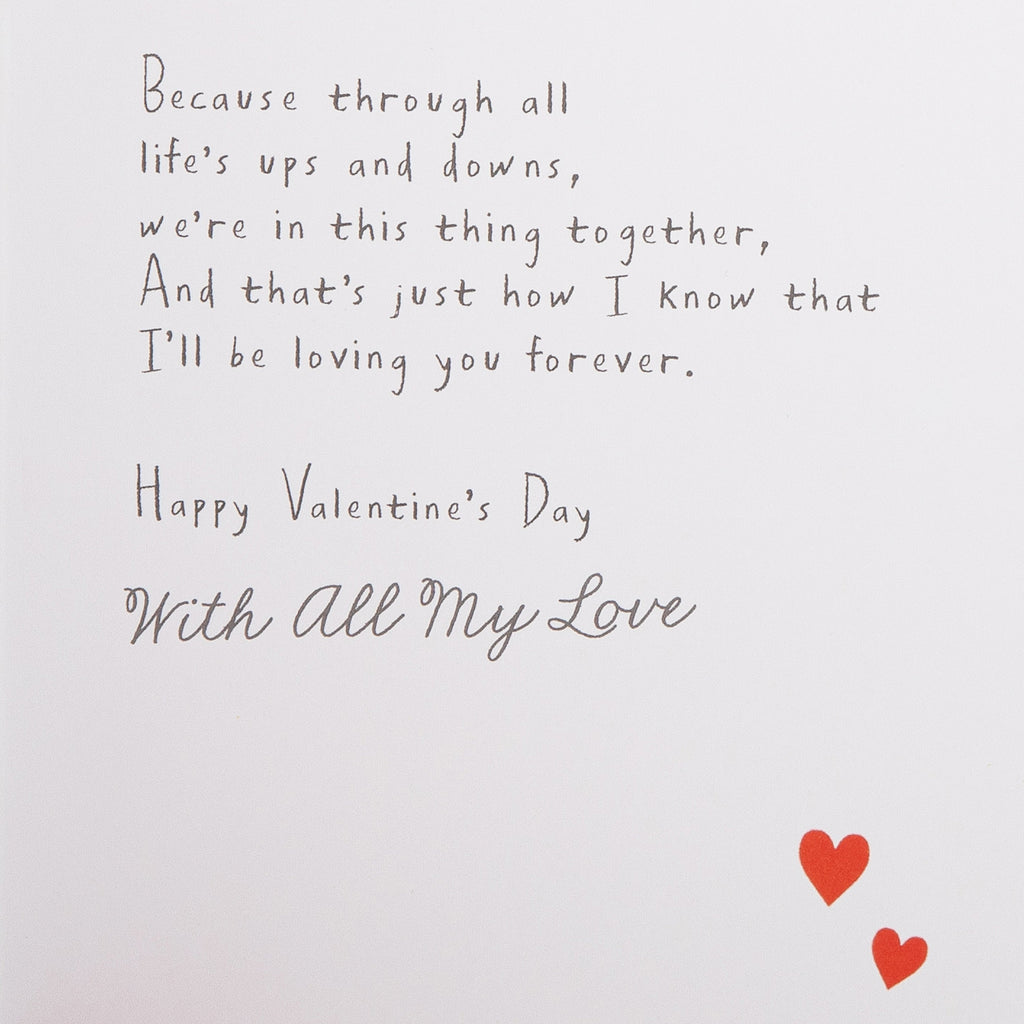 Because through all
life's ups and downs,
we're in this thing together,
And that's just how I know that
I'll be loving you forever.
Happy Valentine's Day
With All My Love